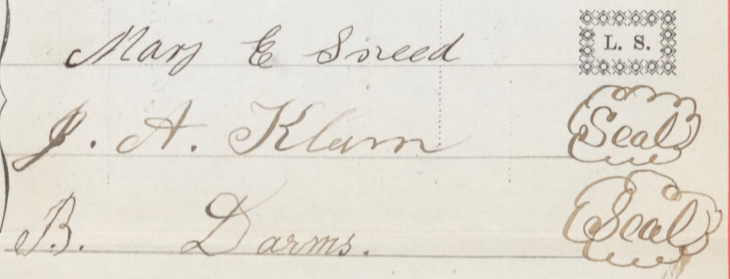 Mary E Sneed L. S.
J. A. Klam Seal
B. Darms. Seal